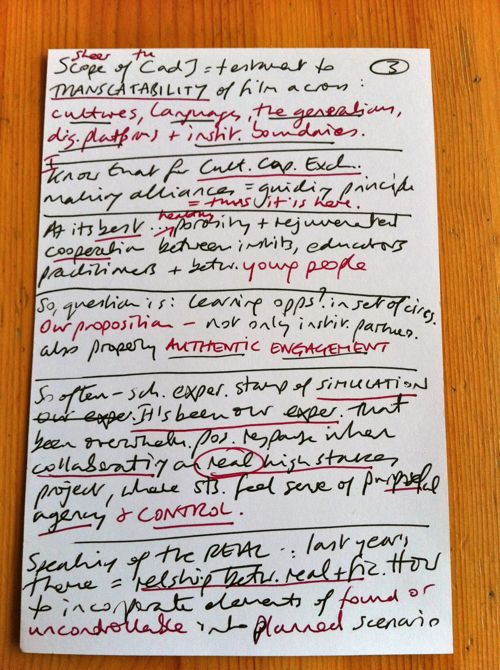 sheer the
Scope of CadJ = testament to ③
TRANSLATABILITY of film across:
cultures, languages, the generations,
dig. platforms + instit. boundaries.
I
know that for Cult. Cap. Exch.
making alliances = guiding principle
= thus it is here.
At its best ... healthy porosity + rejuvenated
cooperation between instits, educators
practitioners + betw. young people
So, question is: learning opps? in set of circs.
Our proposition – not only instit. partner.
also properly AUTHENTIC ENGAGEMENT
So often – sch. exper. stamp of SIMULATION
our exper. It's been our exper. that
been overwhelm. pos. response when
collaborating on real high stakes
project, where sts. feel sense of purposeful
agency & CONTROL.
Speaking of the REAL ... last year's
theme = relship betw. real + fic. How
to incorporate elements of found or
uncontrollable into planned scenario